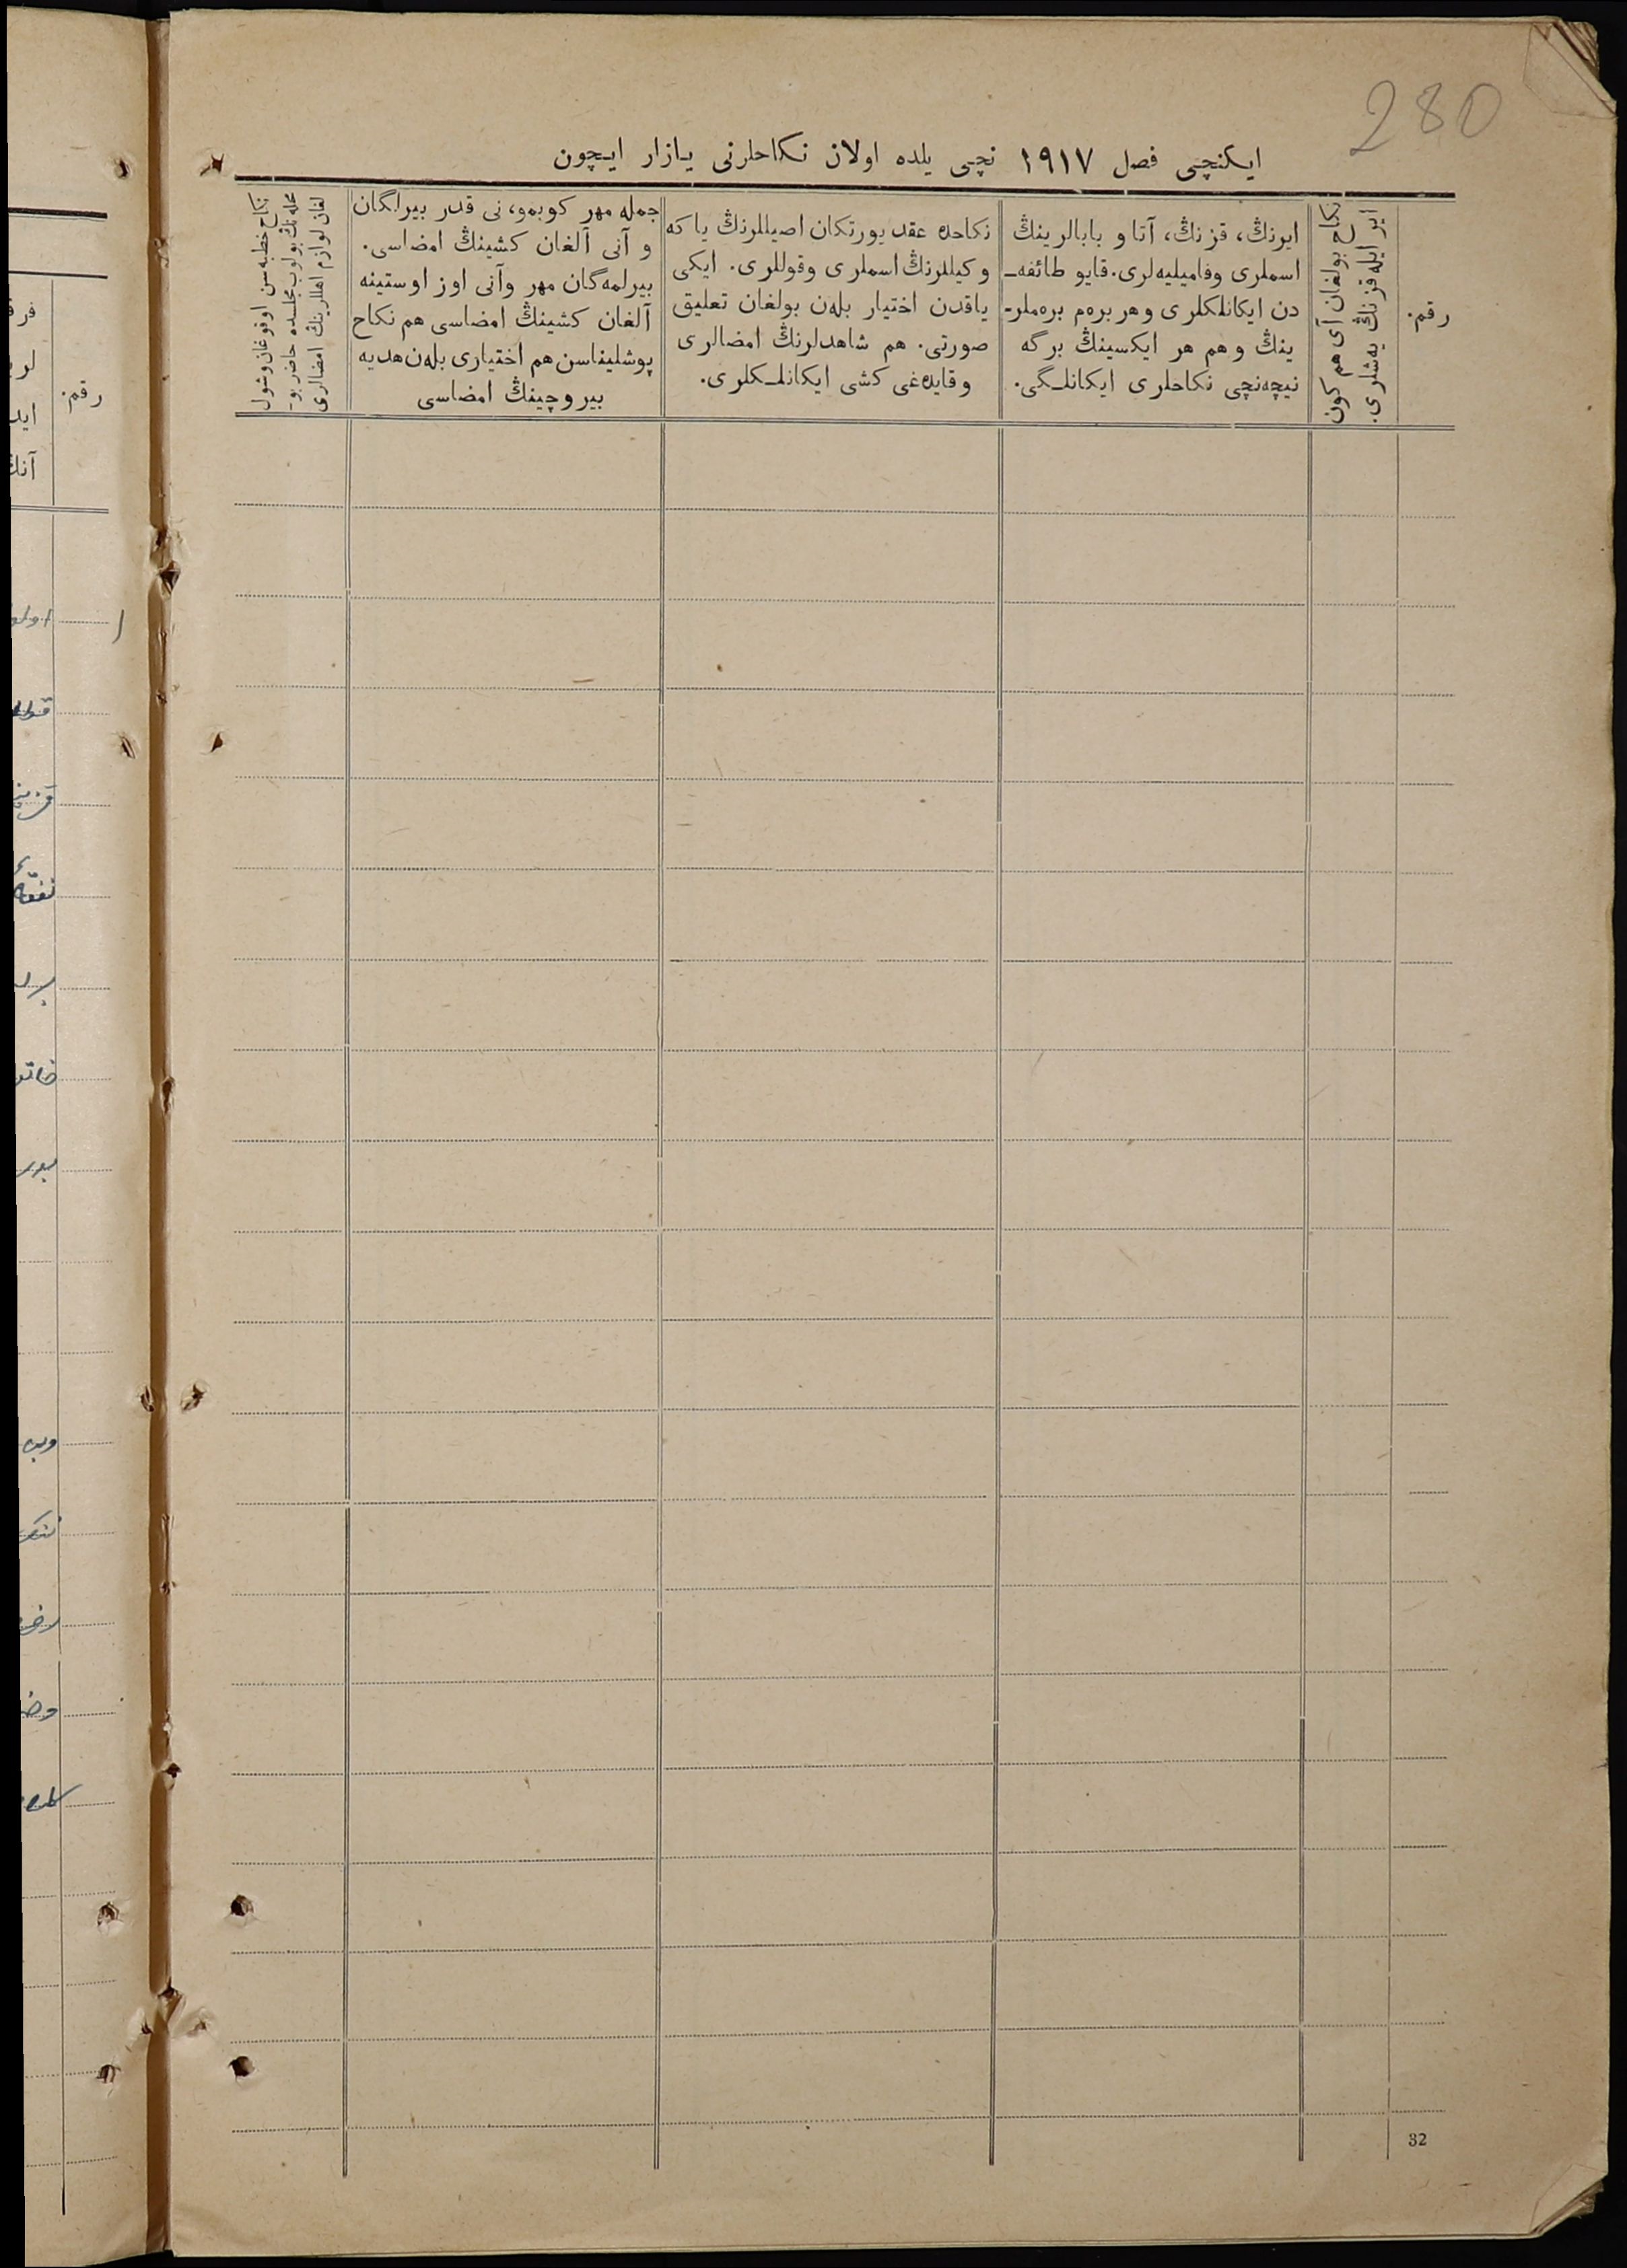 280
ایکنچی فصل ١٩١٧ نچی یلده اولان نکاحلرنی یازار ایچون
رقم.
ایر ایله قزنڭ یه‌شلری.
نکاح بولغان آی هم کون
ایرنڭ، قزنڭ، آتا و بابالرینڭ
اسملری وفامیلیه‌لری. قایو طائفه‌ـ
دن ایکانلکلری و هر بره‌م بره‌ملرـ
ینڭ و هم هر ایکسینڭ برگه
نیچه‌نچی نکاحلری ایکانلـگی.
نکاحده عقد یورتکان اصیللرنڭ یاکه
وکیللرنڭ اسملری وقوللری. ایکی
یاقدن اختیار بله‌ن بولغان تعلیق
صورتی. هم شاهدلرنڭ امضالری
وقایده‌غی کشی ایکانلـکلری.
جمله مهر کوبمو، نی قدر بیرلگان
و آنی آلغان کشینڭ امضاسی.
بیرلمه‌گان مهر وآنی اوز اوستینه
آلغان کشینڭ امضاسی هم نکاح
پوشلیناسن هم اختیاری بله‌ن هدیه
بیروچینڭ امضاسی
نکاح خطبه‌سن اوقوغان وشول
محله‌نڭ بولوب مجلسده حاضر بوـ
لغان لوازم اهللرینڭ امضالری
رقم.
32